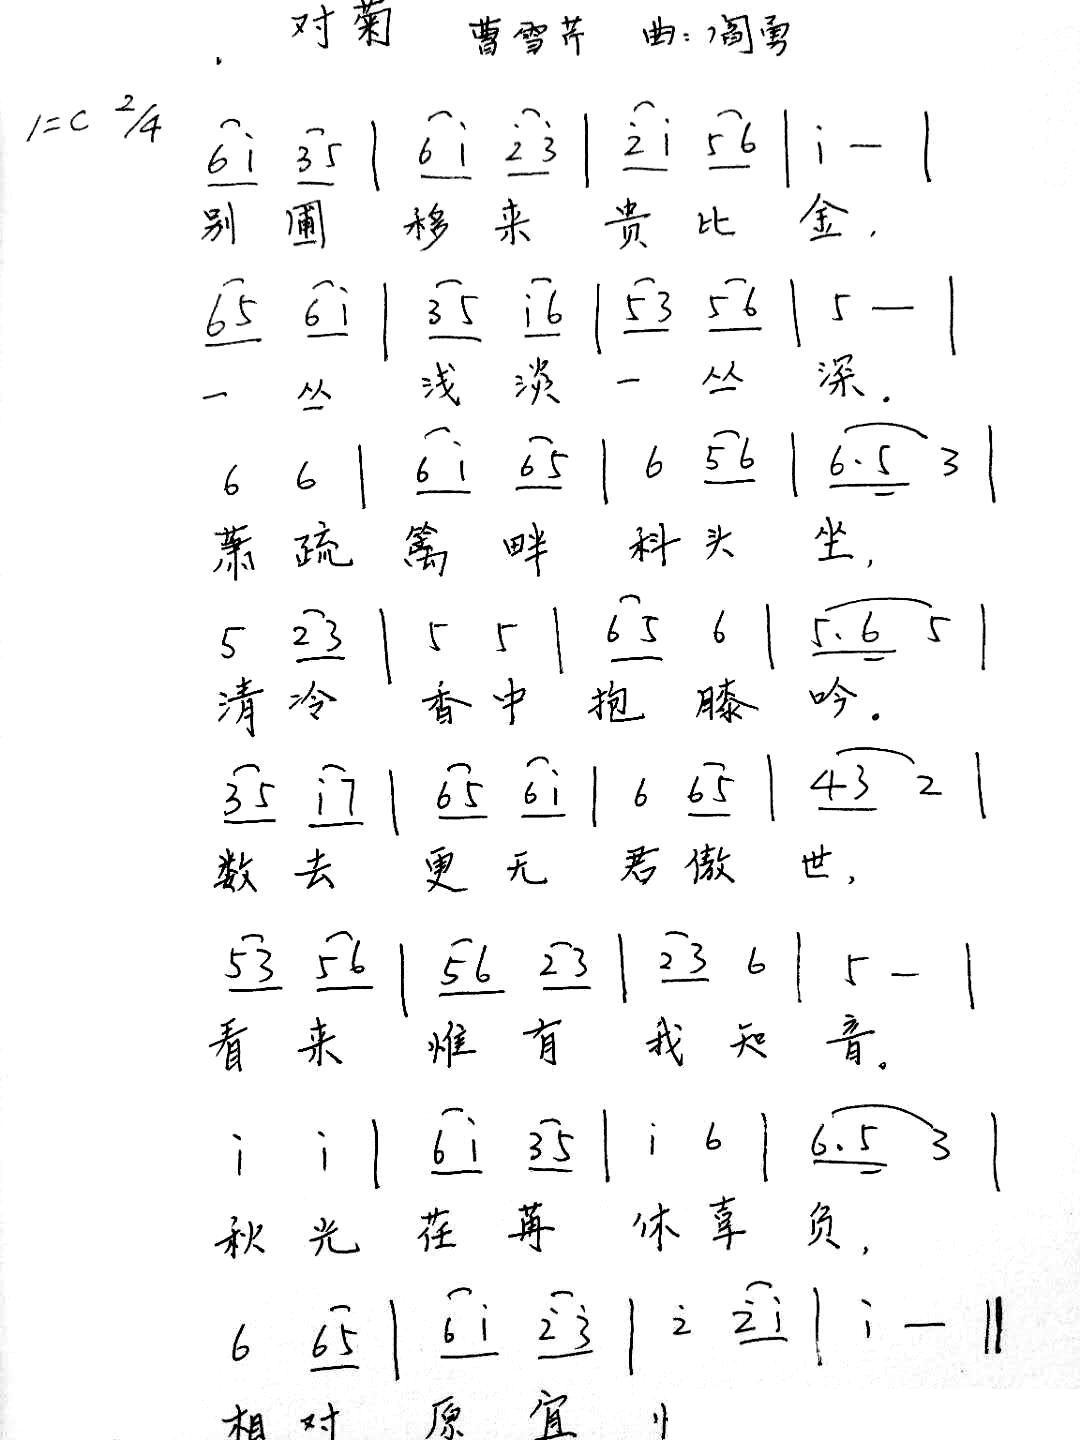 对菊 曹雪芹 曲：阎勇
1=C 2/4
6i̇ 35 | 6i̇ 2̇3̇ | 2̇i̇ 56 | i̇ — |
别圃 移来 贵比 金，
65 6i̇ | 35 i̇6 | 53 56 | 5 — |
一丛 浅淡 一丛 深．
6 6 | 6i̇ 65 | 6 56 | 6.5 3 |
萧疏 篱畔 科头 坐，
5 23 | 5 5 | 65 6 | 5.6 5 |
清冷 香中 抱膝 吟．
35 i̇7 | 65 6i̇ | 6 65 | 43 2 |
数去 更无 君傲 世，
53 56 | 56 23 | 23 6 | 5 — |
看来 惟有 我知 音。
i̇ i̇ | 6i̇ 35 | i̇ 6 | 6.5 3 |
秋光 荏苒 休辜 负，
6 65 | 6i̇ 2̇3̇ | 2̇ 2̇i̇ | i̇ — ‖
相对 原宜